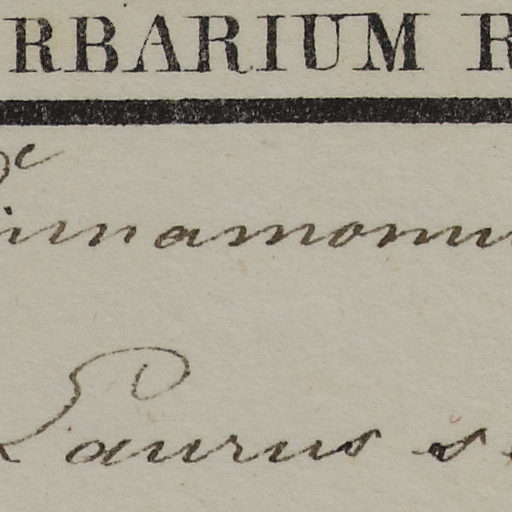 RBARIUM R
innamomu
Laurus s